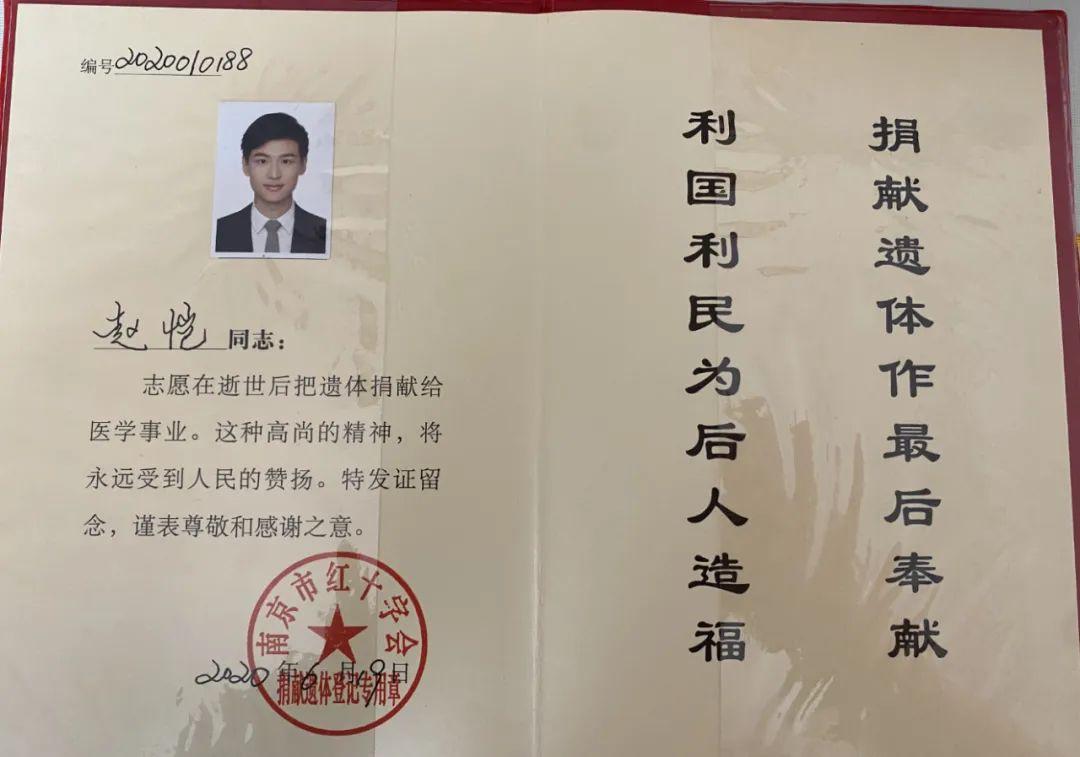 编号2020010188
赵恺 同志：
志愿在逝世后把遗体捐献给
医学事业。这种高尚的精神，将
永远受到人民的赞扬。特发证留
念，谨表尊敬和感谢之意。
南京市红十字会
2020年6月9日
捐献遗体登记专用章
捐献遗体作最后奉献
利国利民为后人造福